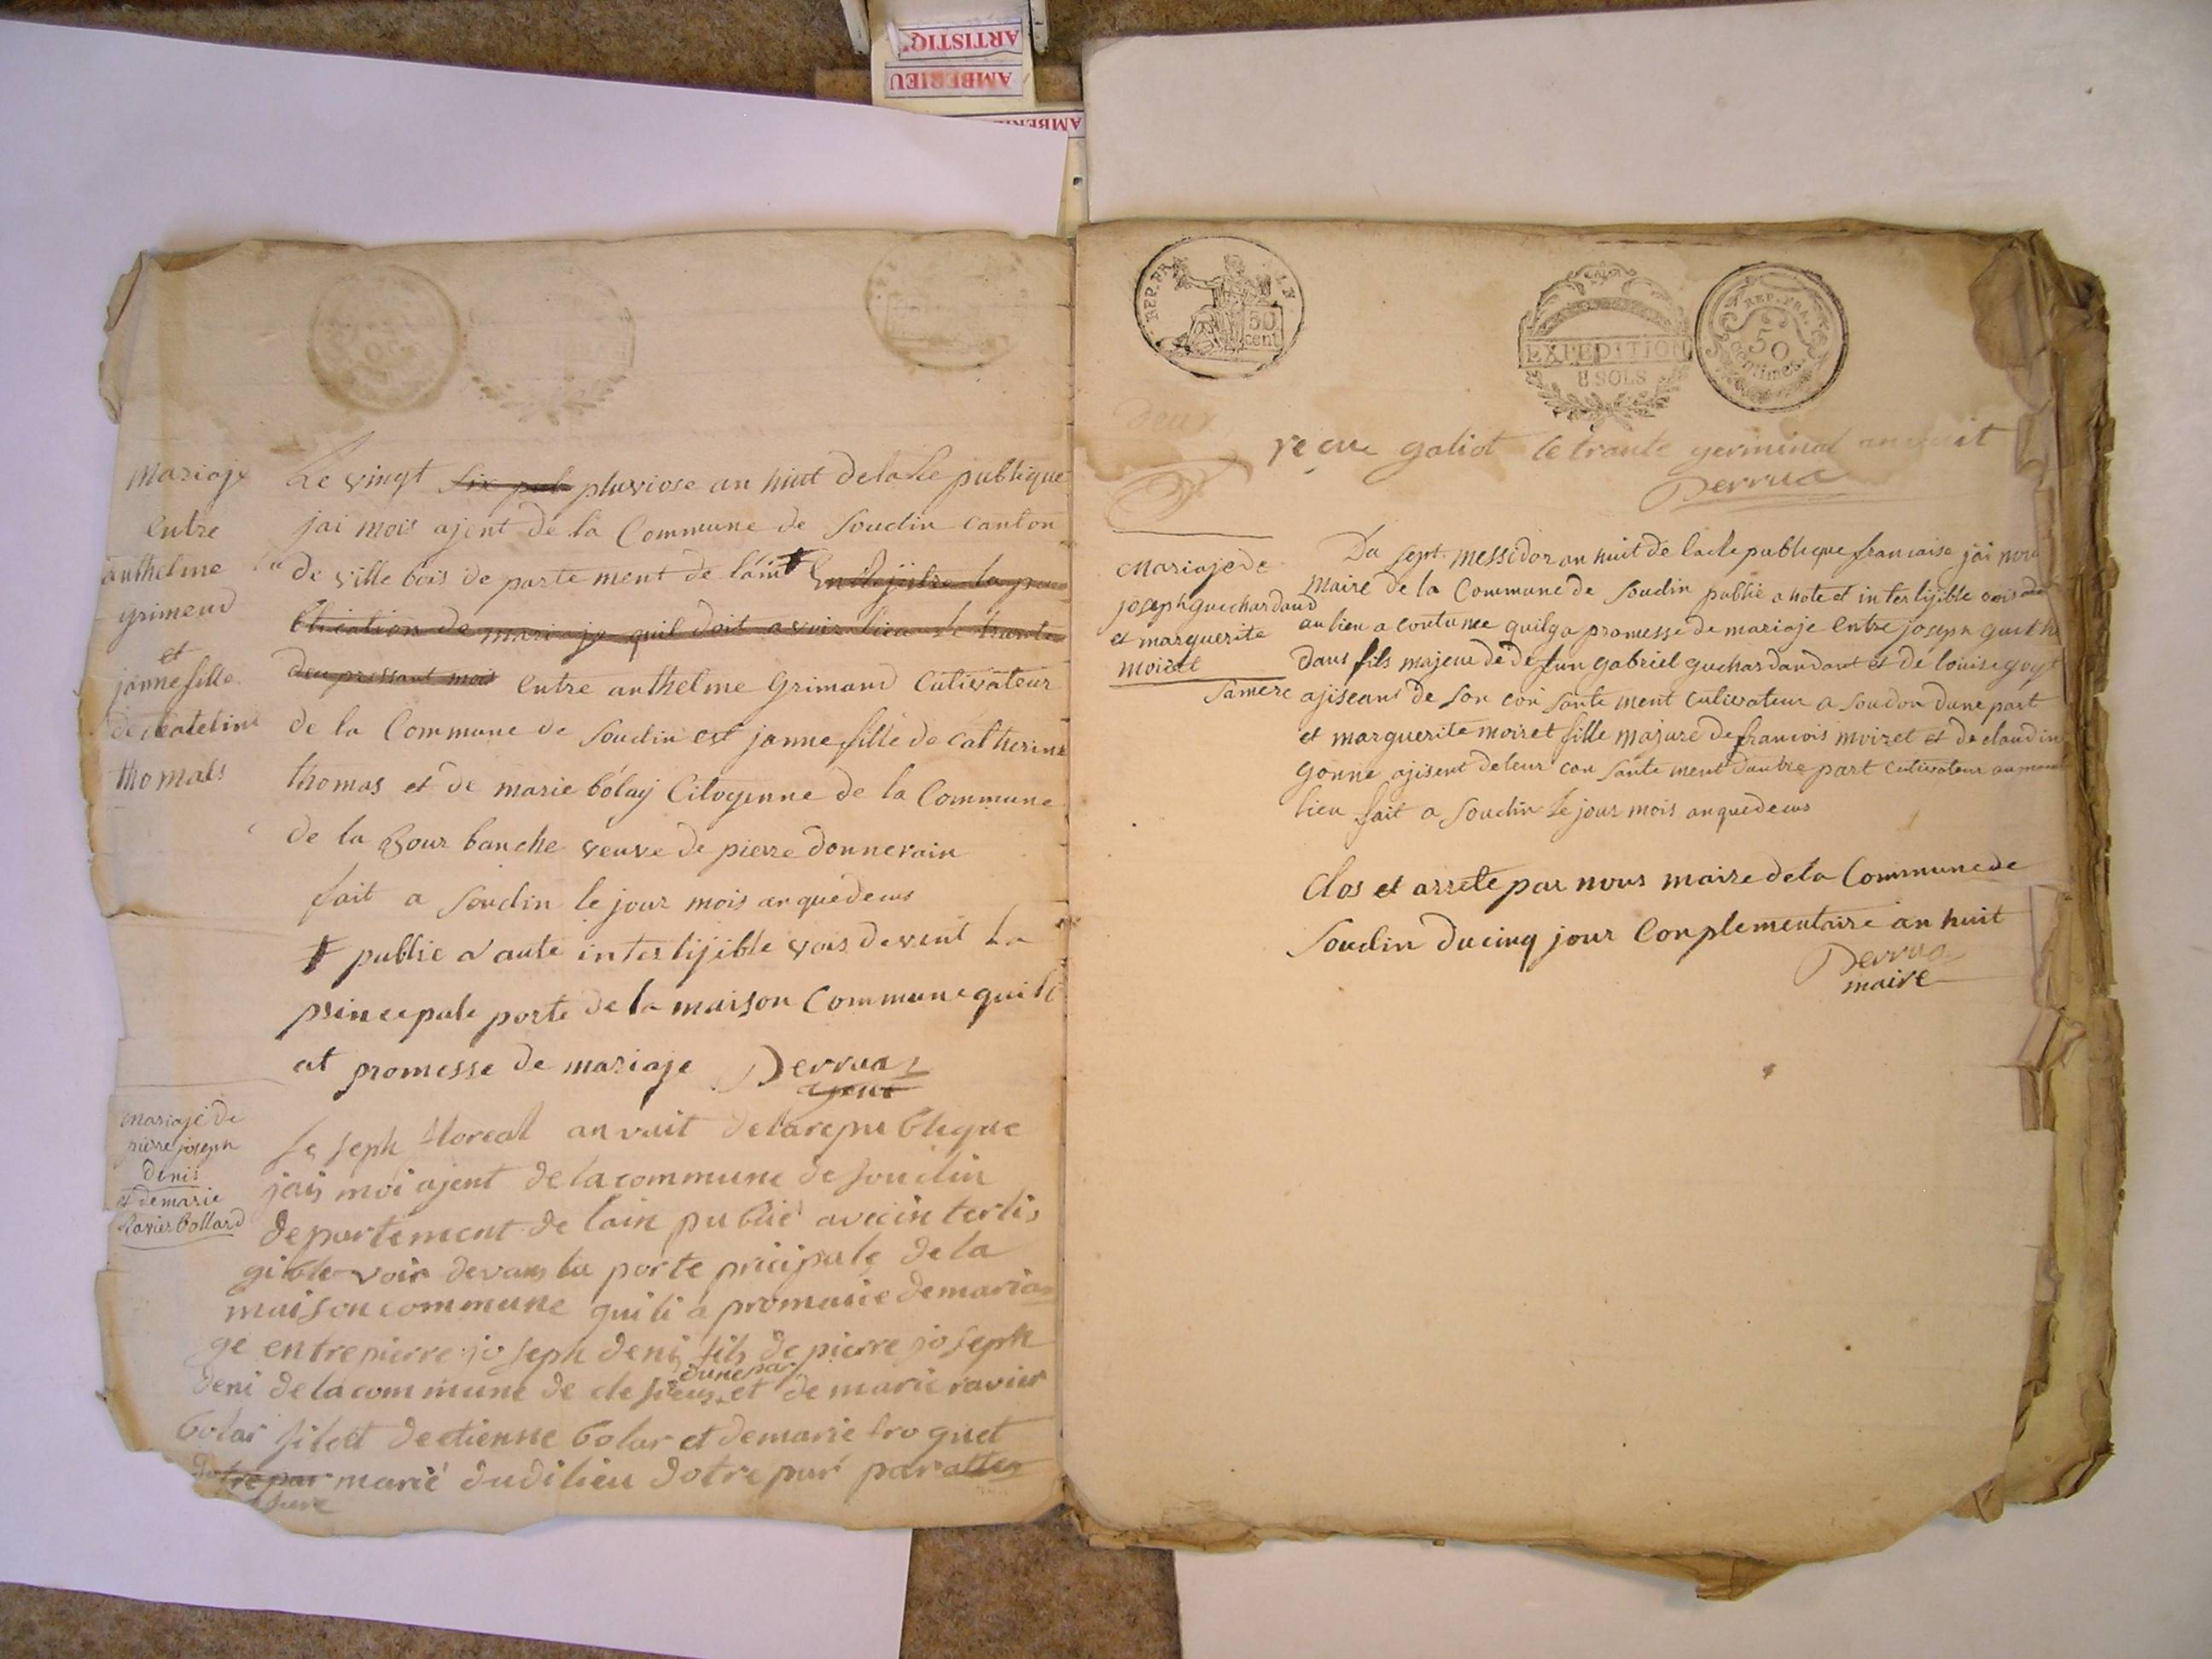 ARTISTIQ
AMBERIEU
Mariaje
entre
anthelme
Grimaud
et
janne fille
de Cateline
thomas
Le vingt six pub pluviose an huit de la Re publique
jai mois ajent de la Commune de Soudin canton
de ville bois de parte ment de l'ain
blication de mariaje quil doit avoir lieu le trante
du pressant mois entre anthelme Grimaud Cutivateur
de la Commune de Soudin est janne fille de Catherine
thomas et de marie bolay Citoyenne de la Commune
de la Bour banche veuve de pierre Donnevain
fait a Soudin le jour mois an quedeus
publie a aute interlijible vois devent La
principale porte de la maison Commune quil i
at promesse de mariaje Derrua
ajent
mariaje de
pierre joseph
Denis
et de marie
Ravier bollard
Le seph floreal an vuit de la republique
jais moi ajent de la commune de Soudin
departement de lain publié avec in terlis
gible voix devans la porte pricipale de la
maison commune qui li a promasie de maria
ge entre pierre joseph deni fils de pierre joseph
dune par
deni de la commune de et de marie ravier
bolar de etienne bolar et de marie froguet
dotre par marié dudi lieu dotre par par
REP. FRA
50
cent
EXPEDITION
8 SOLS
REP. FRA.
50
centimes
Deux
reçue galiot le trante germinal an vuit
Derrua
Mariaje de
joseph guchardaud
et marguerite
moiret
Du sept messidor an huit de la Re publique francaise jai nous
maire de la Commune de Soudin publié a hote et interlijible vois
au lieu a coutumee quil ya promesse de mariaje entre joseph guch
dans fils majeur de de fun gabriel guchardandant et de louise goyt
sa mere ajiseant de son con sante ment cutivateur a Soudon dune part
et marguerite moiret fille majure de francois moiret et de claudin
gonne ajisent de leur con sante ment dautre part cutivateur au meme
lieu fait a Soudin le jour mois an quedeus
Clos et arrete par nous maire de la Commune de
Soudin du cinq jour Conplementaire an huit
Derrua
maire